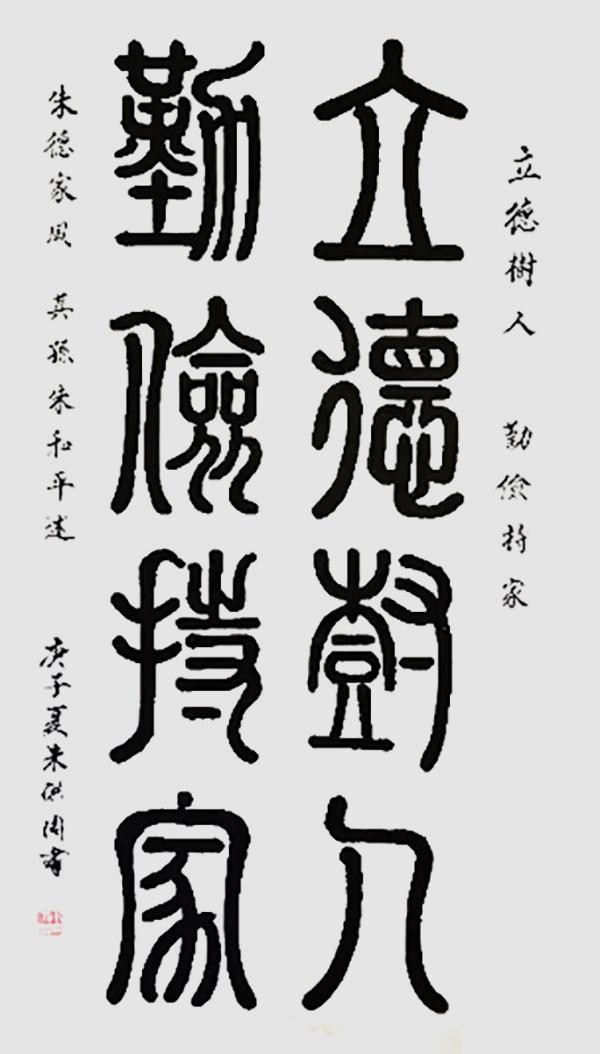 立德樹人 勤儉持家
立德樹人
勤儉持家
朱德家風 其孫朱和平述 庚子夏朱周書